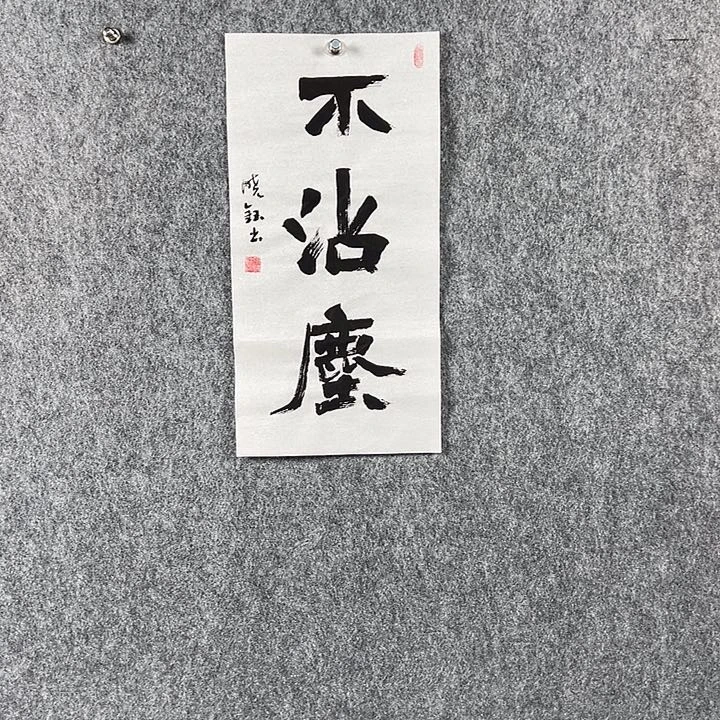 不沾塵
曉鈺书